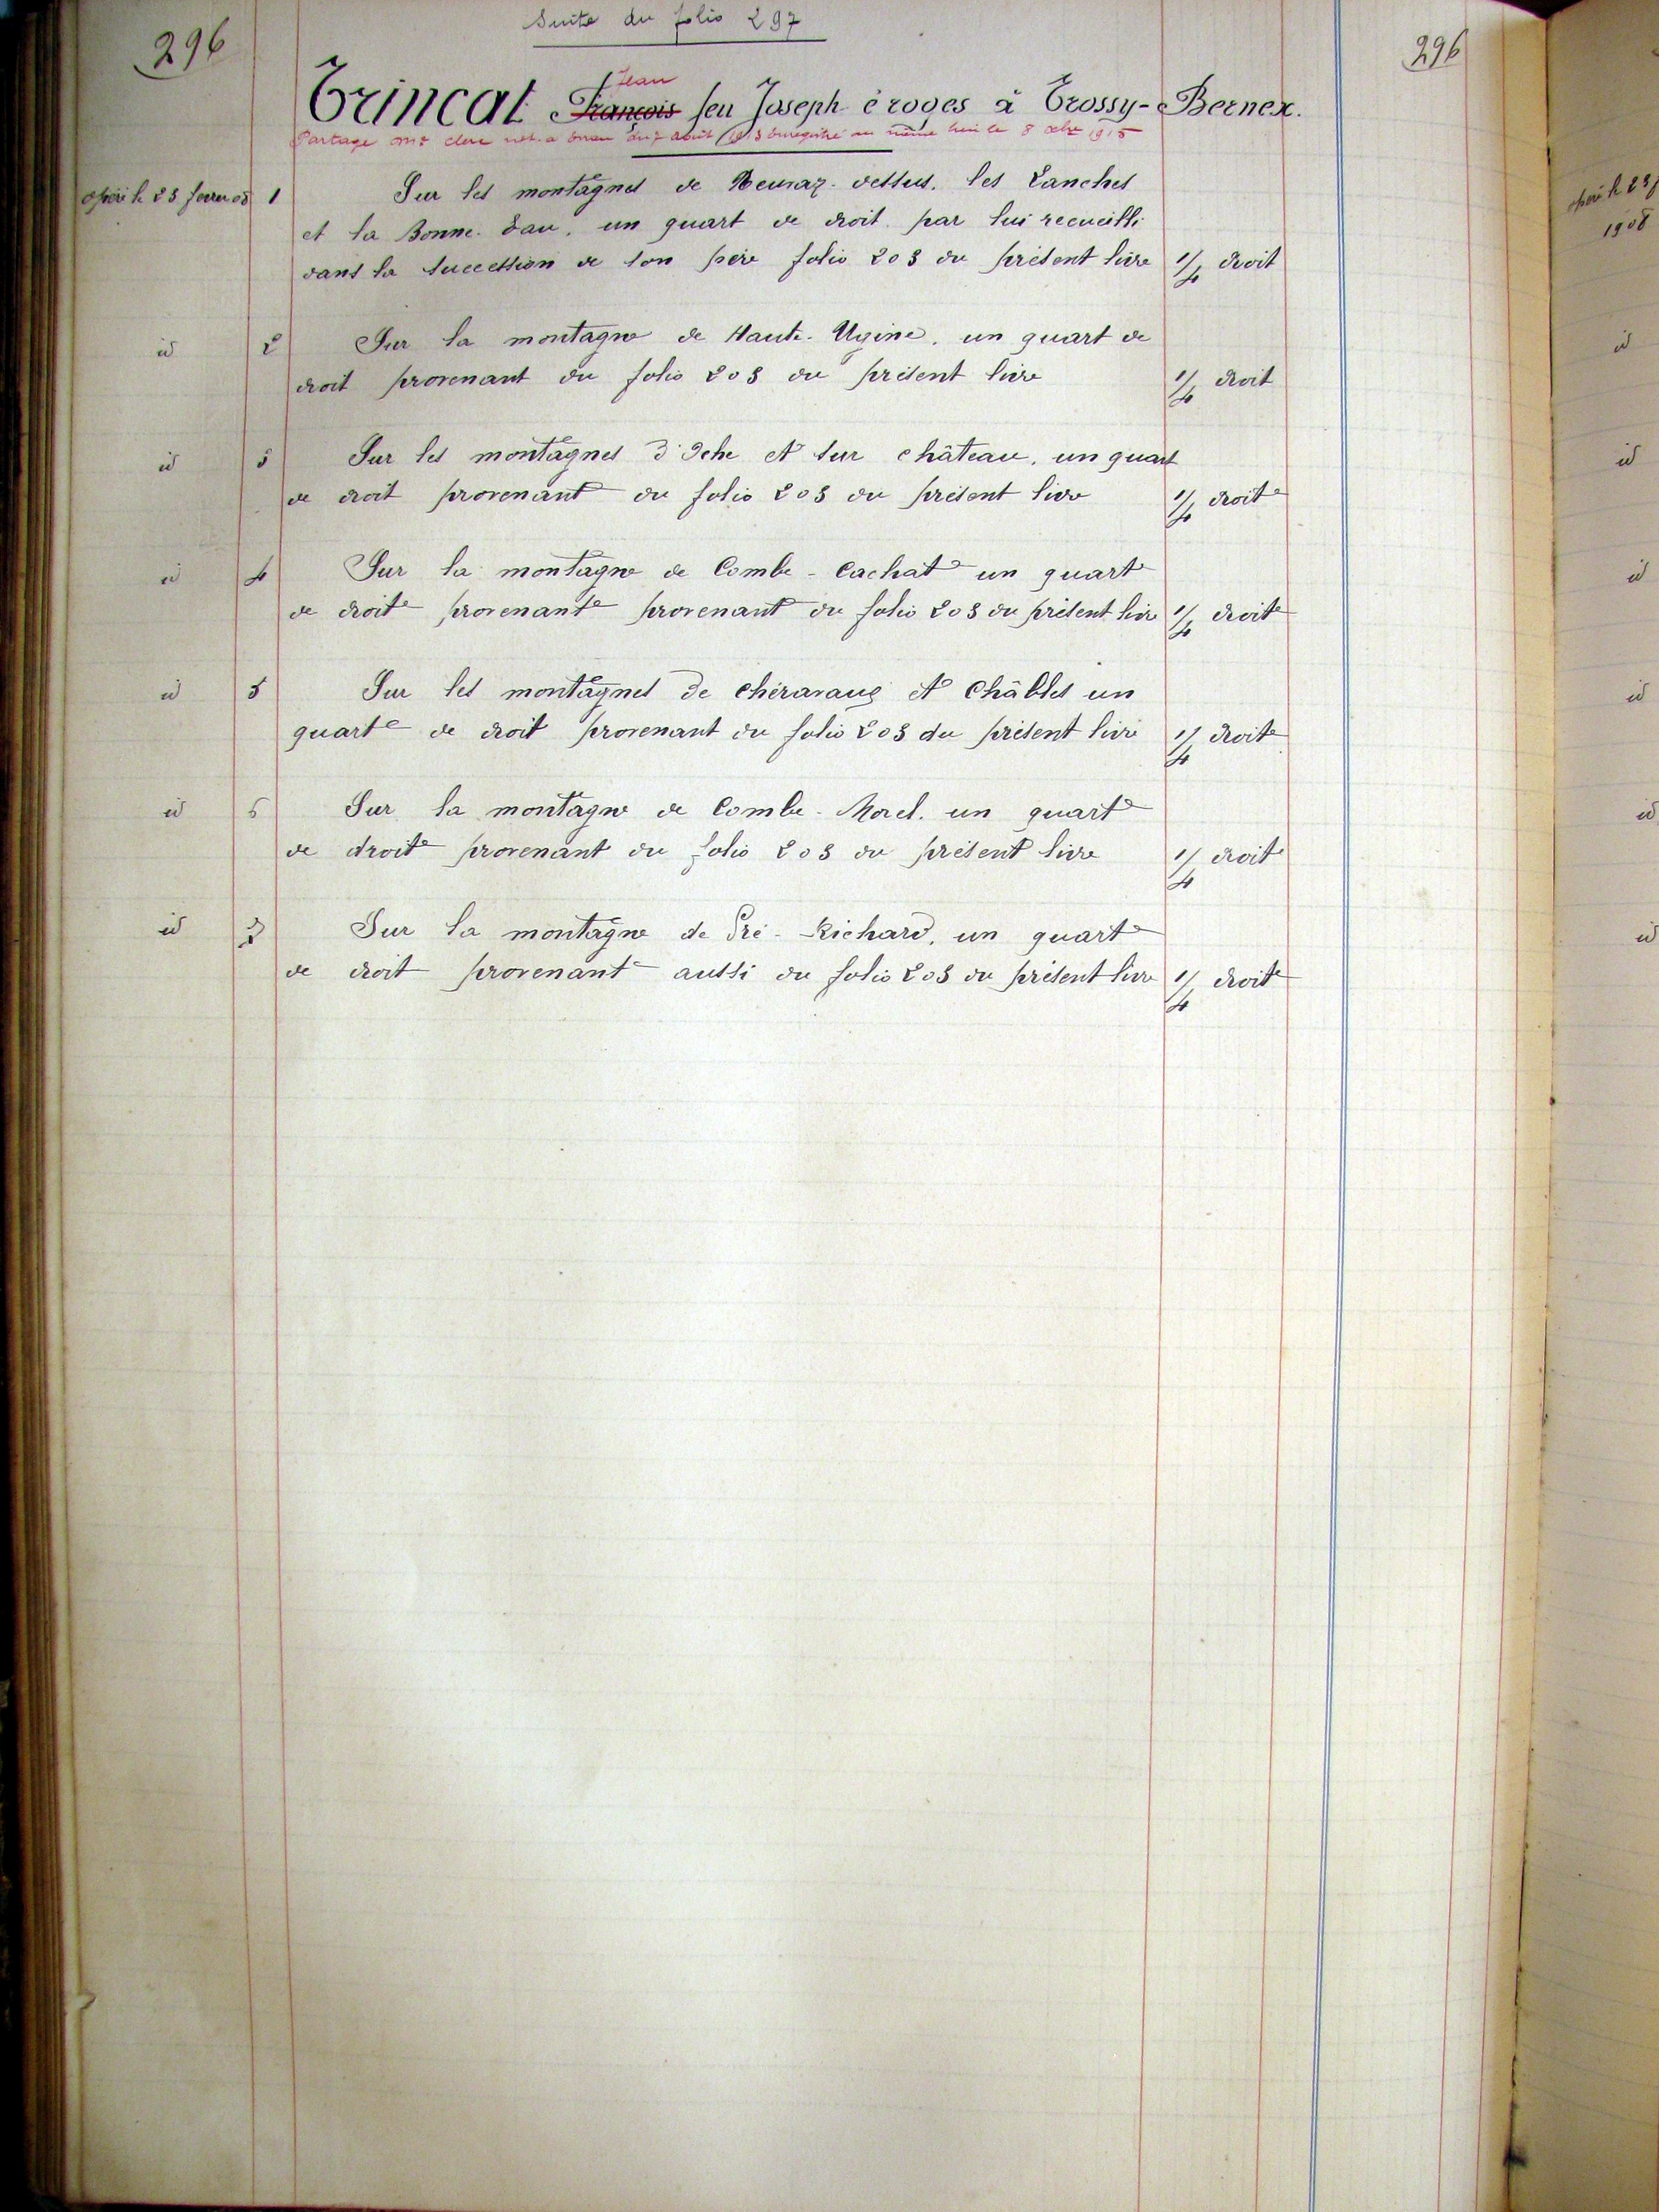 Suite du folio 297
296
296
Jean
Trincat François feu Joseph é roges à Trossy-Bernex.
Partage Me Clerc not. a du 7 août 1913 enregistré au même lieu le 8
opéré le 23 1
Sur les montagnes de Neuraz-dessus, les Lanches
et la Bonne-Eau, un quart de droit par lui recueilli
dans la succession de son père folio 203 du présent livre 1/4 droit
id 2 Sur la montagne de Haute-Ugine, un quart de
droit provenant du folio 203 du présent livre 1/4 droit
id 3 Sur les montagnes d'Oche et sur château, un quart
de droit provenant du folio 203 du présent livre 1/4 droit
id 4 Sur la montagne de Combe-Cachat un quart
de droit provenant provenant du folio 203 du présent livre 1/4 droit
id 5 Sur les montagnes de et Châbles un
quart de droit provenant du folio 203 du présent livre 1/4 droit
id 6 Sur la montagne de Combe-Morel, un quart
de droit provenant du folio 203 du présent livre 1/4 droit
id 7 Sur la montagne de Pré-Richard, un quart
de droit provenant aussi du folio 203 du présent livre 1/4 droit
opéré le 23
1908
id
id
id
id
id
id